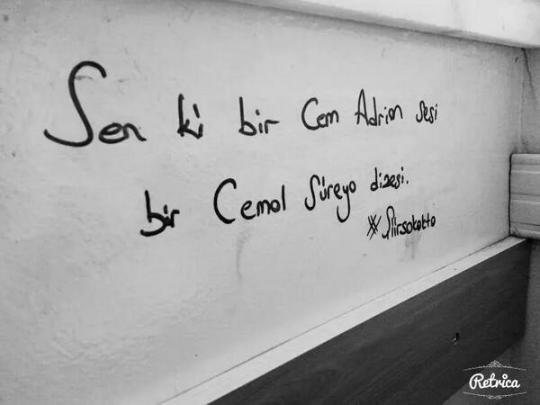 Sen ki bir Cem Adrian sesi
bir Cemal Süreya dizesi.
#Şiirsokakta
Retrica